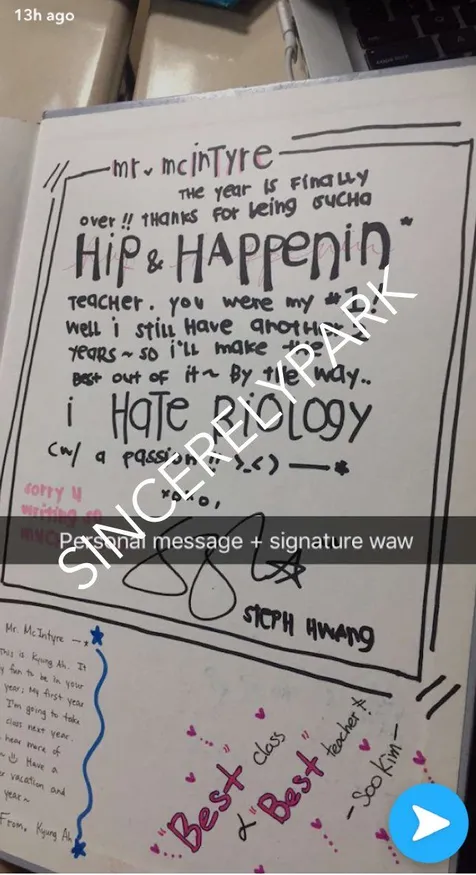 13h ago
mr. mcinTyre
THE year is Finally
over!! THanks For being sucHa
Hip & HAPPenin*
Teacher. you were my #1!
Well i still Have another 2
years~ so i'll make the
Best out of it~ By the way..
i HaTe BiOlogy
(w/ a passion!! >_<) —*
xoxo,
sorry 4
writing so
STEPH HWANG
SINCERELYPARK
Personal message + signature waw
Mr. McIntyre —*
This is Kyung Ah. It
fun to be in your
year; My first year
I'm going to take
class next year.
hear more of
~ Have a
vacation and
year~
From, Kyung Ah
"Best" class
& "Best" teacher!
- Soo Kim -